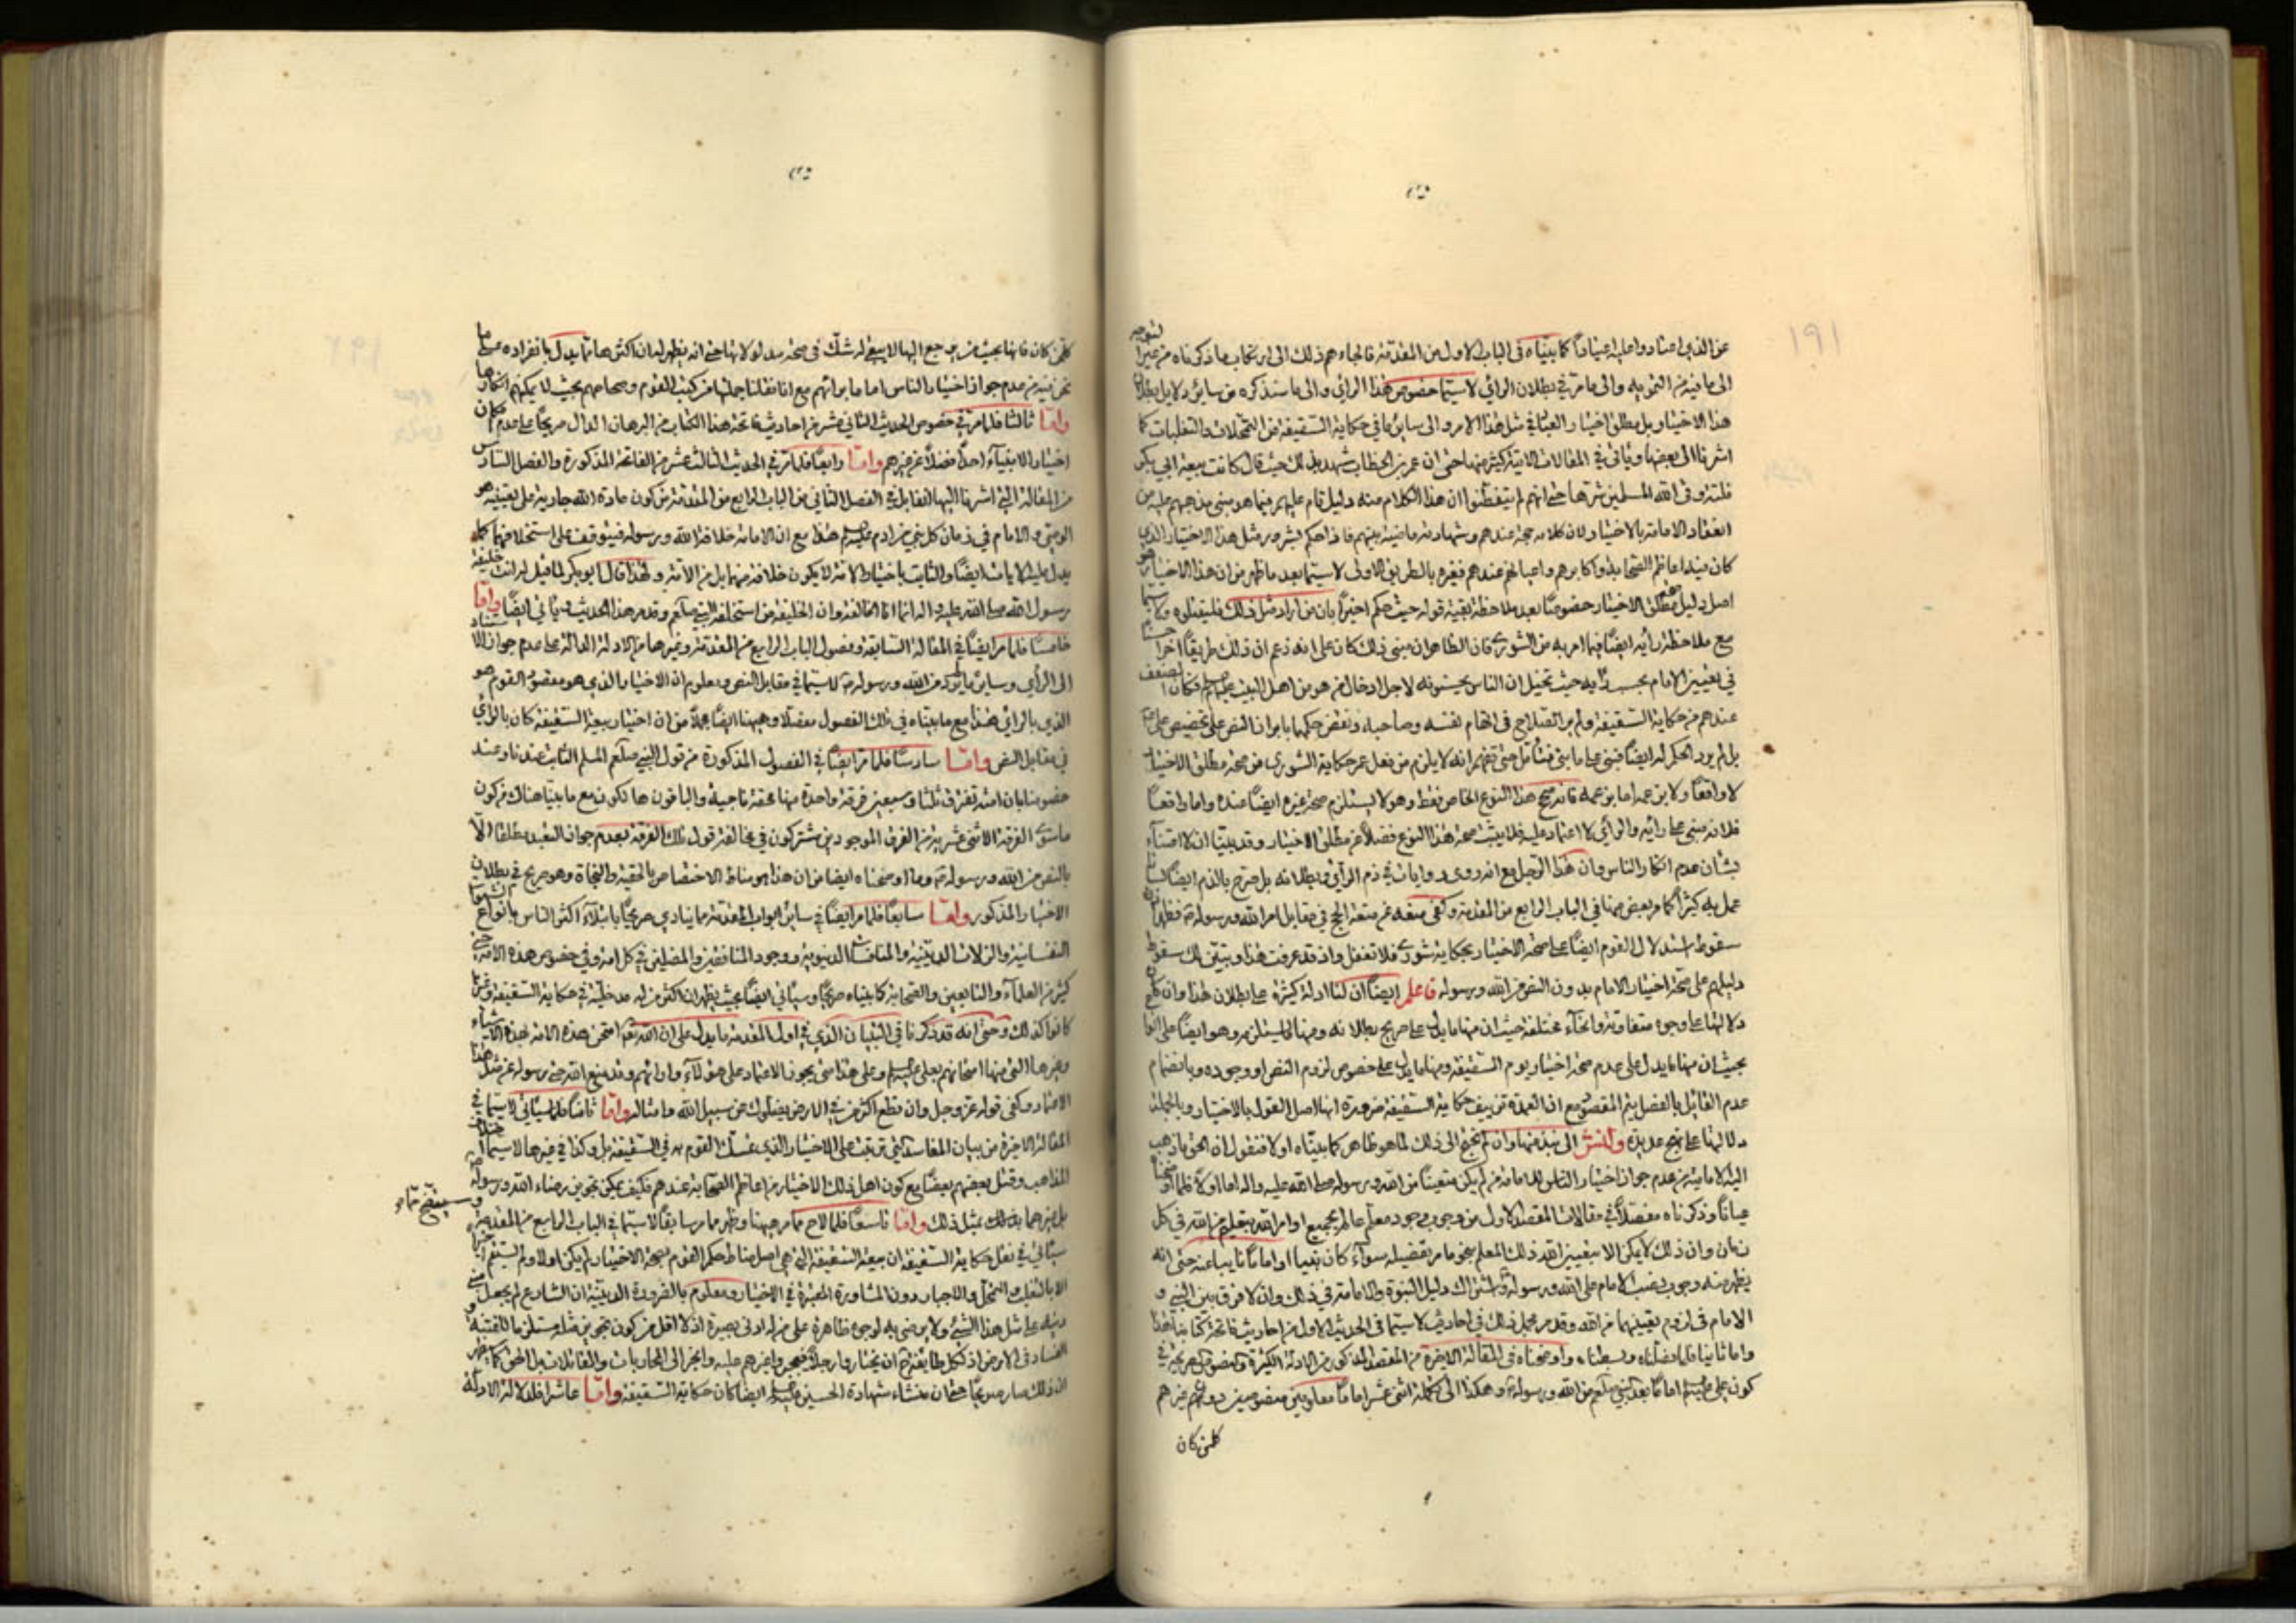 ١٩١
عن الذي اعتاد واعليه اعتياداً كما بيّناه في الباب الاول من المقدمة فالجاءهم ذلك الى ارتكاب ما ذكرناه من غير التوجه
الى ما فيه من التمويه والى ما مرّ في بطلان الرائي لا سيما خصوص هذا الرائي والى ما سنذكره من سائر دلايل بطلان
هذا الاختيار بل مطلق اختيار العباد في مثل هذا الامر والى سائر ما في حكاية السقيفة من التمحلات والتغلبات كما
اشرنا الى بعضها ويأتي في المقالات الآتية كثير منها حتى ان عمر بن الخطاب شهد بذلك حيث قال كانت بيعة ابي بكر
فلتة وقى الله المسلمين شرها حتى انهم لم يتفطنوا ان هذا الكلام منه دليل قام عليهم فيما هو مبنى مذهبهم عليه من
انعقاد الامامة بالاختيار لان كلامه حجة عندهم وشهادته ماضية بينهم فاذا حكم بشر مثل هذا الاختيار الذي
كان فيه اعاظم الصحابة واكابرهم واعيانهم عندهم فغيره بالطريق الاولى لا سيما بعد ما ظهر من ان هذا الاختيار هو
اصل دليل مطلق الاختيار خصوصاً بعد ملاحظة بقية قوله حيث حكم اخيراً بان من اراد مثل ذلك فليقتلوه ولا سيما
مع ملاحظة رأيه ايضاً فيما امر به من الشورى فان الظاهر ان مبنى ذلك كان على انه زعم ان ذلك طريقاً آخر
في تعيين الامام بحسب رأيه حيث تخيل ان الناس يحبسونه لاجل ادخال من هو من اهل البيت عليهم السلام فكان
عندهم من حكاية السقيفة ولم ير الصلاح في اتهام نفسه وصاحبه ونقض حكمهما بايراد النص على تخصيص علي
بل لم يرد الحكم له ايضاً فبنى على ما بنى فتأمل حتى تفهم انه لا يلزم من فعل عمر حكاية الشورى من صحة مطلق الاختيار
لا واقعاً ولا بن عمه اما بن عمه فانه صح هذا النوع الخاص فقط وهو لا يستلزم صحة غيره ايضاً عنده واما واقعاً
فلانه مبنى على رائيه والرأي لا اعتماد عليه فلا يثبت صحة هذا النوع فضلاً عن مطلق الاختيار وقد بيّنا ان لا اعتناء
بشأن عدم انكار الناس وان هذا الرجل مع انه روى روايات في ذم الرأي وبطلانه بل صرح بالذم ايضاً
عمل به كثيراً كما مر بعض منها في الباب الرابع من المقدمة وكفى منعه عن متعة الحج في مقابل امر الله ورسوله فظهر
سقوط استدلال القوم ايضاً على صحة الاختيار بحكاية شورى فلا تغفل واذ قد عرفت هذا وتبيّن لك سقوط
دليلهم على صحة اختيار الامام بدون النص من الله ورسوله فاعلم ايضاً ان لنا ادلة كثيرة على بطلان هذا وان كان
دلالتها على وجوه متفاوتة وانحاء مختلفة حيث ان منها ما يدل على صريح بطلانه ومنها لما يستلزمه وهو ايضاً على
بحيث ان منها ما يدل على عدم صحة اختيار يوم السقيفة ومنها ما يدل على خصوص لزوم النص او وجوده وبانضمام
عدم القائل بالفصل يتم المقصود مع ان العمدة تزييف حكاية السقيفة ضرورة انها اصل القول بالاختيار وبالجملة
دلالتها على نهج عديدة ولنشر الى نبذ منها وان لم نحتج الى ذلك لما هو ظاهر كما بيّناه اولاً فنقول ان الحق ما ذهب
اليه الامامية من عدم جواز اختيار الناس للامامة من لم يكن متعيناً من الله ورسوله صلى الله عليه واله اما اولاً فلما اوضحنا
عياناً وذكرناه مفصلاً في مقالات المقصد الاول من وجوب وجود معلم عالم بجميع اوامر الله بتعليم من الله في كل
زمان وان ذلك لا يمكن الا بتعيين الله ذلك المعلم بنحو ما مر تفصيله سواء كان نبياً او اماماً نايباً عنه حتى انه
يظهر منه وجوب نصب الامام على الله ورسوله واشتراك دليل النبوة والامامة في ذلك وان لا فرق بين النبي و
الامام في لزوم تعيينهما من الله وقد مر مجمل ذلك في احاديث لا سيما في الحديث الاول من احاديث فاتحة كتابنا هذا
واما ثانياً فلما فصّلناه وبسطناه واوضحناه في المقالة الاخيرة من المقصد المذكور من الادلة الكثيرة والنصوص الصريحة في
كون علي عليه السلام اماماً بعد النبي صلعم من الله ورسوله وهكذا الى تكملة اثني عشر اماماً معلومين منصوصين دون غيرهم
كلمن كان
كلمن كان فانها بحيث من يرجع اليها لا يبقى له شك في صحة مدلولاتها حتى انه يظهر له ان اكثرها مما يدل بانفراده على ما
نحن فيه من عدم جواز اختيار الناس اماما برائهم مع انا نقلنا جملتها من كتب القوم وصحاحهم بحيث لا يمكنهم انكارها
واما ثالثا فلما مر في خصوص الحديث الثاني عشر من احاديث فاتحة هذا الكتاب من البرهان الدال صريحاً على عدم امكان
اختيار الانبياء احداً فضلاً عن غيرهم واما رابعاً فلما مر في الحديث الثالث عشر من الفاتحة المذكورة والفصل السادس
من المقالة التي اشرنا اليها انفا بل في الفصل الثاني من الباب الرابع من المقدمة من كون عادة الله جارية على تعيينه هو
الوصي والامام في زمان كل نبي من ادم عليه السلام هذا مع ان الامامة خلافة الله ورسوله فيتوقف على استخلافهما كما
يدل عليه الايات ايضاً والثابت باختيار الامة لا يكون خلافة منهما بل من الامة ولهذا قال ابو بكر لما قيل له انت خليفة
رسول الله صلى الله عليه واله انما انا الخالفة وان الخليفة من استخلفه النبي صلعم وقد مر هذا الحديث ويأتي ايضاً واما
خامساً فلما مر ايضاً في المقالة السابقة وفصول الباب الرابع من المقدمة وغيرها من الادلة الدالة على عدم جواز الاستناد
الى الرأي وسائر ما لم يؤخذ من الله ورسوله لا سيما في مقابل النص ومعلوم ان الاختيار الذي هو مقصود القوم هو
الذي بالرائي هذا مع ما بيناه في تلك الفصول مفصلا وههنا ايضاً مجملاً من ان اختيار بيعة السقيفة كان بالرأي
في مقابل النص واما سادساً فلما مر ايضاً في الفصول المذكورة من قول النبي صلعم المسلم الثابت عندنا وعند
خصومنا بان امته تفترق ثلثا وسبعين فرقة واحدة منها محقة ناجية والباقون هالكون مع ما بينا هناك من كون
ما سوى الفرقة الاثني عشرية من الفرق الموجودين مشتركون في مخالفة قول تلك الفرقة بعدم جواز التعبد مطلقا الا
بالنص من الله ورسوله وما اوضحناه ايضا من ان هذا هو مناط الاختصاص بالحقية والنجاة وهو صريح في بطلان
الاختيار المذكور واما سابعاً فلما مر ايضاً في سائر ابواب المقدمة مما ينادي صريحاً بابتلاء اكثر الناس بانواع الشهوات
النفسانية والزلات الدينية والمنافسات الدنيوية ووجود المنافقين والمضلين في كل امة وفي خصوص هذه الامة حتى
كثير من العلماء والتابعين والصحابة كما بيناه صريحاً وسيأتي ايضاً بحيث يظهر ان اكثر من له مدخلية في حكاية السقيفة وغيرها
كانوا كذلك وحتى انه قد ذكرنا في التبيان الذي في اول المقدمة ما يدل على ان الله تعالى امتحن هذه الامة بهذه الاشياء
وغيرها التي منها امتحانهم بعلي عليه السلام وعلى هذا متى يجوز الاعتماد على هؤلاء وارائهم وقد منع الله حتى رسوله عن مثل هذا
الاعتماد وكفى قوله عز وجل وان تطع اكثر من في الارض يضلوك عن سبيل الله وامثاله واما ثامناً فلما سيأتي لا سيما في
المقالة الاخيرة من بيان المفاسد التي ترتبت على الاختيار الذي تمسك القوم به في السقيفة بل وكذا في غيرها لا سيما اختلاف
المذاهب وقتل بعضهم بعضاً مع كون اهل ذلك الاختيار من اعاظم الصحابة عندهم فكيف يمكن تجويز رضاء الله ورسوله
بل غيرهما بذلك بمثل ذلك واما تاسعاً فلما لاح مما مر ههنا وظهر مما مر سابقاً لا سيما في الباب الرابع من المقدمة و
سيتضح تماماً
سيأتي في نقل حكاية السقيفة ان بيعة السقيفة التي هي اصل مناط حكم القوم بصحة الاختيار لم يكن اولا ولم يستقم اخيراً
الا بالتغلب والتحيل والاجبار دون المشاورة المعتبرة في الاختيار ومعلوم بالضرورة الدينية ان الشارع لم يجعل مبنى
دينه على مثل هذا الشيء ولا يرضى به لوجوه ظاهرة على من له ادنى بصيرة اذ لا اقل من كون تجويز مثله مستلزما للفتنة و
الفساد في الارض اذ لكل طايفة ح ان يختاروا رجلاً فيجبروا غيرهم عليه وانجر الى المحاربات والمقاتلات بل الحق كما يظهر
ان ذلك صار صريحاً حتى ان منشاء شهادة الحسين عليه السلام ايضاً كان حكاية السقيفة واما عاشرا فلدلالة الادلة